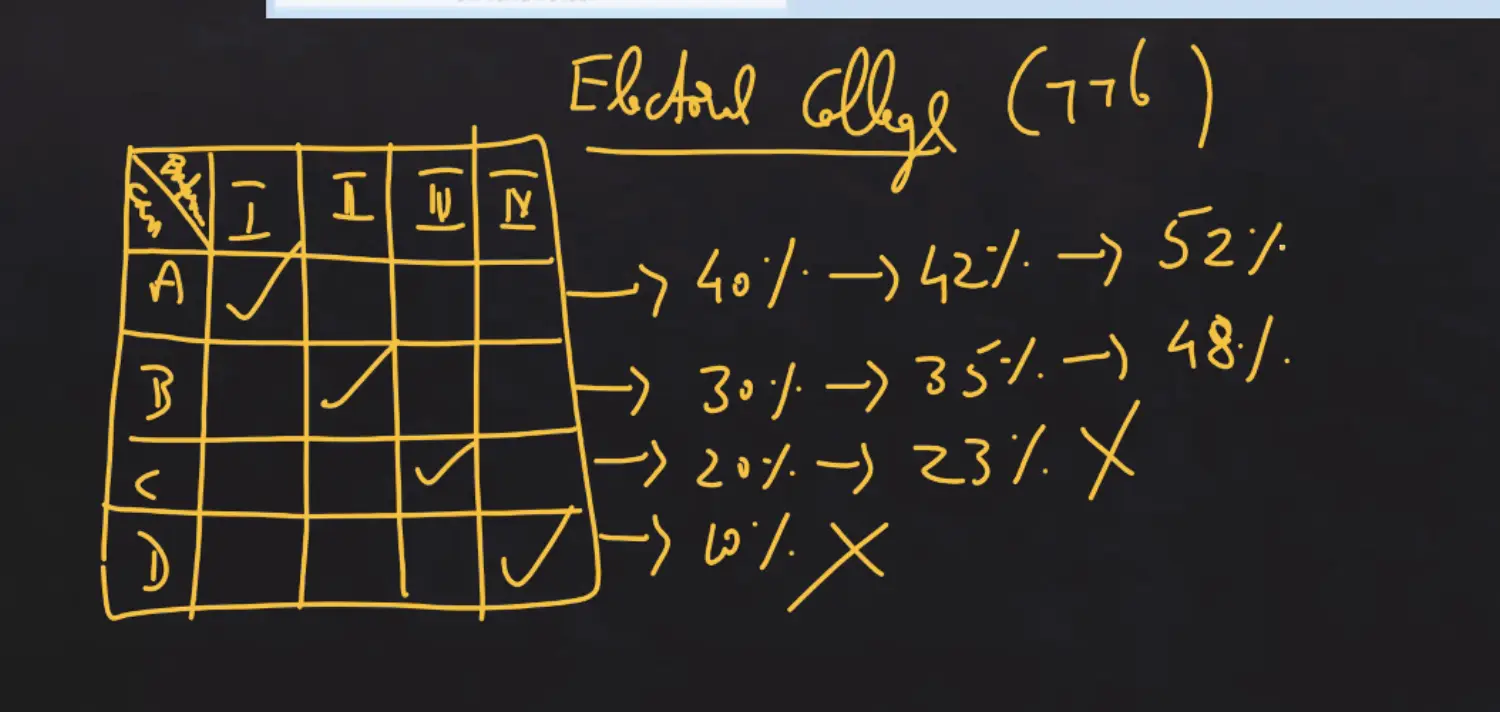 Electoral College (776)
I II IV IV
A → 40% → 42% → 52%
B → 30% → 35% → 48%
C → 20% → 23% X
D → 10% X